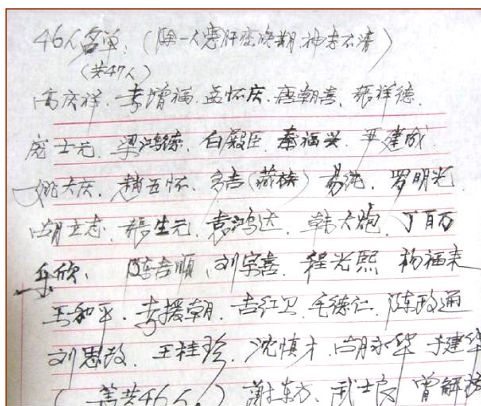 46人名单:(除一人患肝癌晚期,神志不清)
(共47人)
高庆祥、李增福、孟怀庆、唐朝喜、张祥德、
庞士元、梁鸿德、白殿臣、秦福兴、尹建成
姚大庆、赵五怀、多吉(藏族)易纯、罗明光
胡立志、张生元、袁鸿达、韩大炮、丁百万
乐欣、陈吉顺、刘宗喜、程光熙、杨福来
王和平、李援朝、吉红卫、毛德仁、陈政通
刘思改、王桂珍、沈慎才、胡永华、于建华
(共46人)谢东方、武士良、曾解放